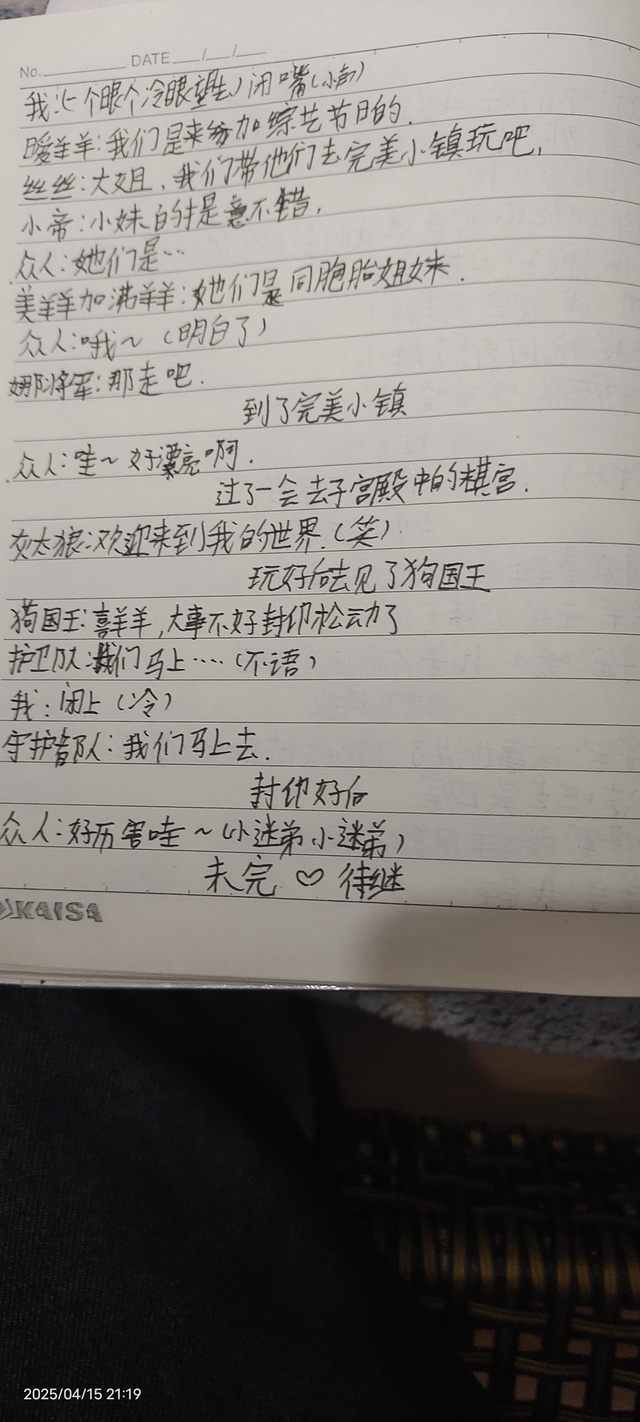 No. DATE / /
我:(个眼个冷眼望生)闭嘴(小声)
暖羊羊:我们是来参加综艺节目的.
丝丝:大姐,我们带他们去完美小镇玩吧,
小帝:小妹的主意不错,
众人:她们是…
美羊羊加沸羊羊:她们是同胞胎姐妹.
众人:哦~(明白了)
娜将军:那走吧.
到了完美小镇
众人:哇~好漂亮啊.
过了一会去了宫殿中的棋宫.
灰太狼:欢迎来到我的世界.(笑)
玩好后去见了狗国王
狗国王:喜羊羊,大事不好封印松动了
护卫队:我们马上……(不语)
我:闭上(冷)
守护部队:我们马上去.
封印好后
众人:好厉害哇~(小迷弟小迷弟)
未完♡待继
KAISA
2025/04/15 21:19